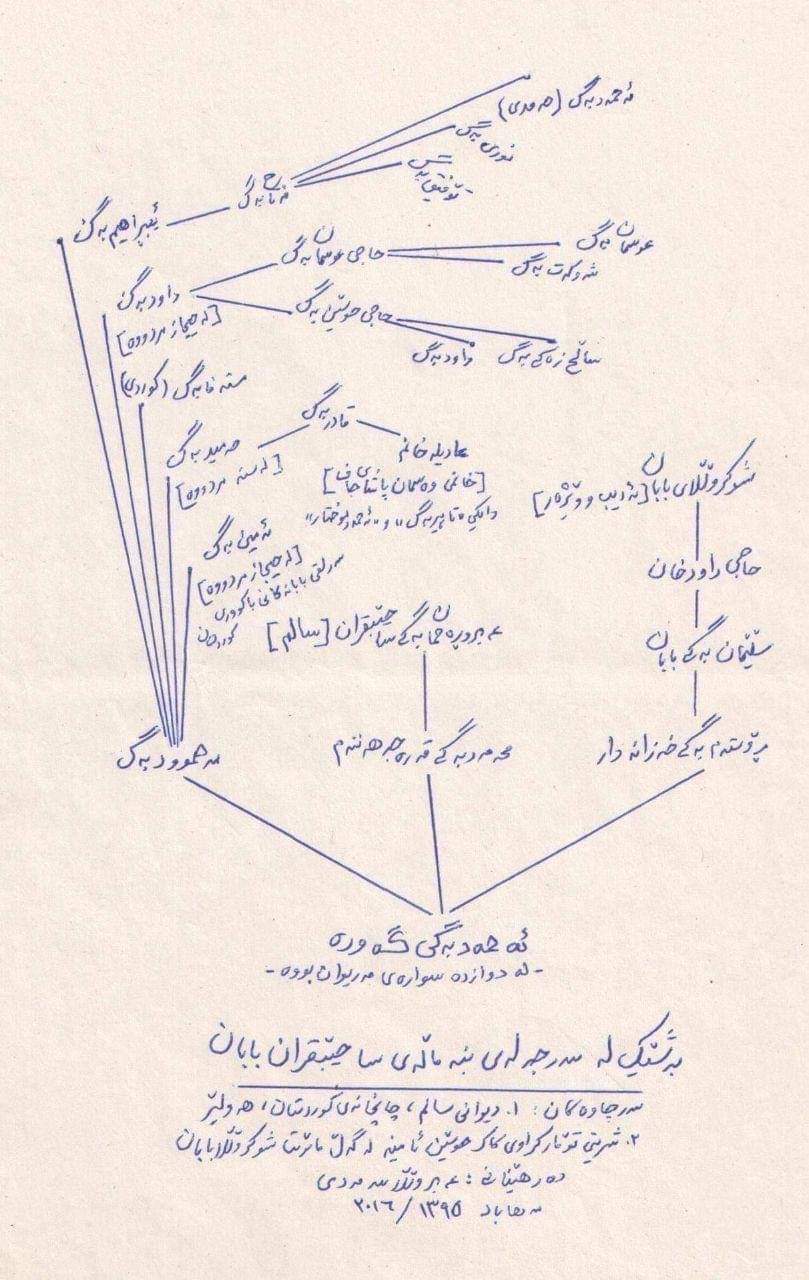 ئەحمەد بەگ (حەمدی)
نوری بەگ
تۆفیق بەگ
فەتاح بەگ
ئیبراهیم بەگ
عوسمان بەگ
شەوکەت بەگ
حاجی عوسمان بەگ
داود بەگ
[لە حیجاز مردووە]
حاجی حوسێن بەگ
ساڵح زەکی بەگ
داود بەگ
مستەفا بەگ (کوردی)
قادر بەگ
حەمید بەگ
[لە سنە مردووە]
عادیلە خانم
[خانمی وەسمان پاشای جاف]
دایکی «تاهیر بەگ» و «ئەحمەد موختار»
شوکروڵڵای بابان
[ئەدیب و وێژەر]
ئەمین بەگ
[لە حیجاز مردووە]
بابانەکانی باکووری
کوردستان
حاجی داودخان
عەبدوڕەحمان بەگی ساحێبقران [سالم]
سلێمان بەگی بابان
مەحموود بەگ
محەمەد بەگی قەرەجەهەننەم
ڕۆستەم بەگی خەزانەدار
ئەحمەد بەگی گەورە
- لە دوازدە سوارەی مەریوان بووە -
بەشێک لە سەجەلەی بنەماڵەی ساحێبقران بابان
سەرچاوەکان: ١. دیوانی سالم، چاپخانەی کوردستان، هەولێر
٢. شریتی تۆمارکراوی کاک حوسێن ئامینە لەگەڵ مامۆستا شوکروڵڵا بابان
دەرهێنانی: عەبدوڵڵا سەمەدی
مەهاباد ١٣٩٥/ ٢٠١٦